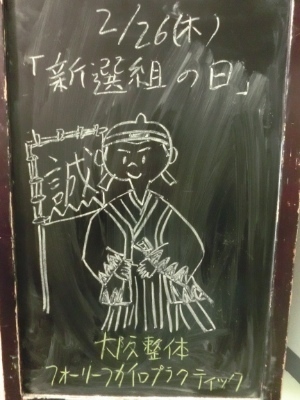 2/26(木)
「新選組の日」
誠
大阪整体
フォーリーフカイロプラクティック